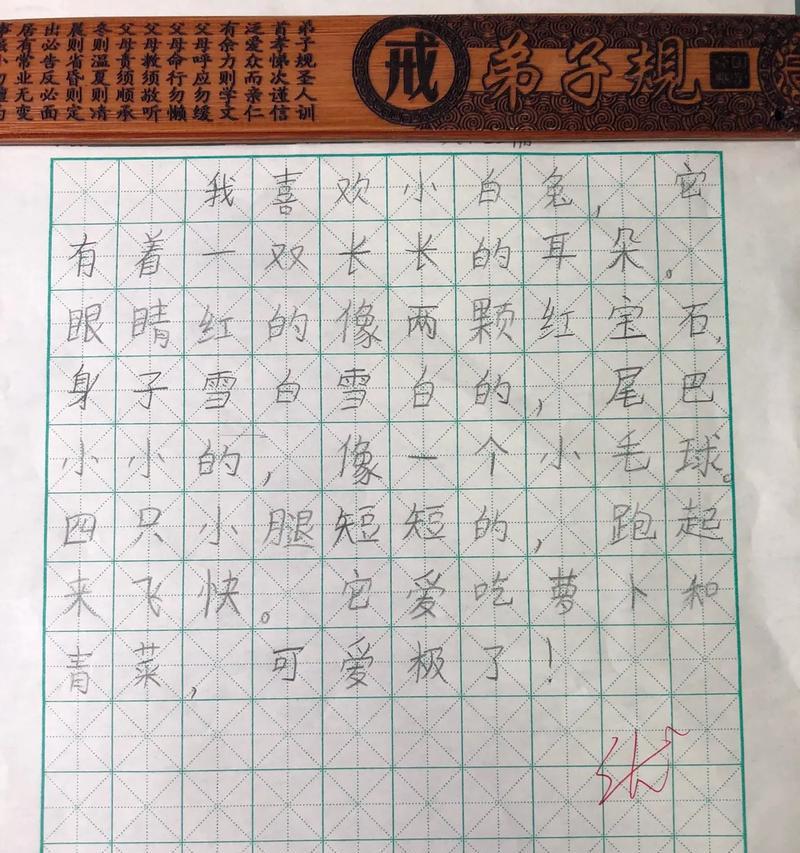 戒 弟子規
弟子规圣人训
首孝悌次谨信
泛爱众而亲仁
有余力则学文
父母呼应勿缓
父母命行勿懒
父母教须敬听
父母责须顺承
冬则温夏则凊
晨则省昏则定
出必告反必面
居有常业无变
我喜欢小白兔，它
有着一双长长的耳朵。
眼睛红的像两颗红宝石，
身子雪白雪白的，尾巴
小小的，像一个小毛球。
四只小腿短短的，跑起
来飞快。它爱吃萝卜和
青菜，可爱极了！
优